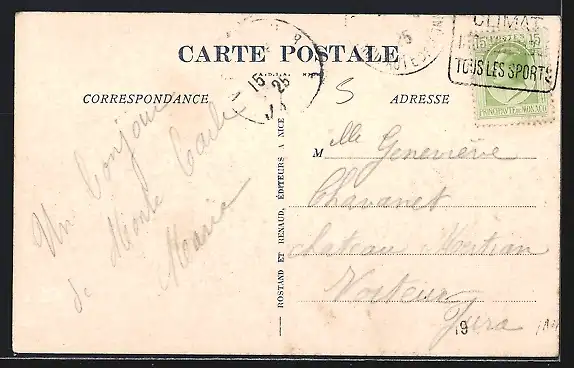 CARTE POSTALE
CORRESPONDANCE
ADRESSE
Un bonjour
de Monte Carlo
Maria
ROSTAND ET RENAUD, ÉDITEURS A NICE
Mlle Geneviève
Chavanet
Chateau
Jura
19
5
15
25
CLIMAT
TOUS LES SPORTS
15 POSTES 15
PRINCIPAUTÉ DE MONACO